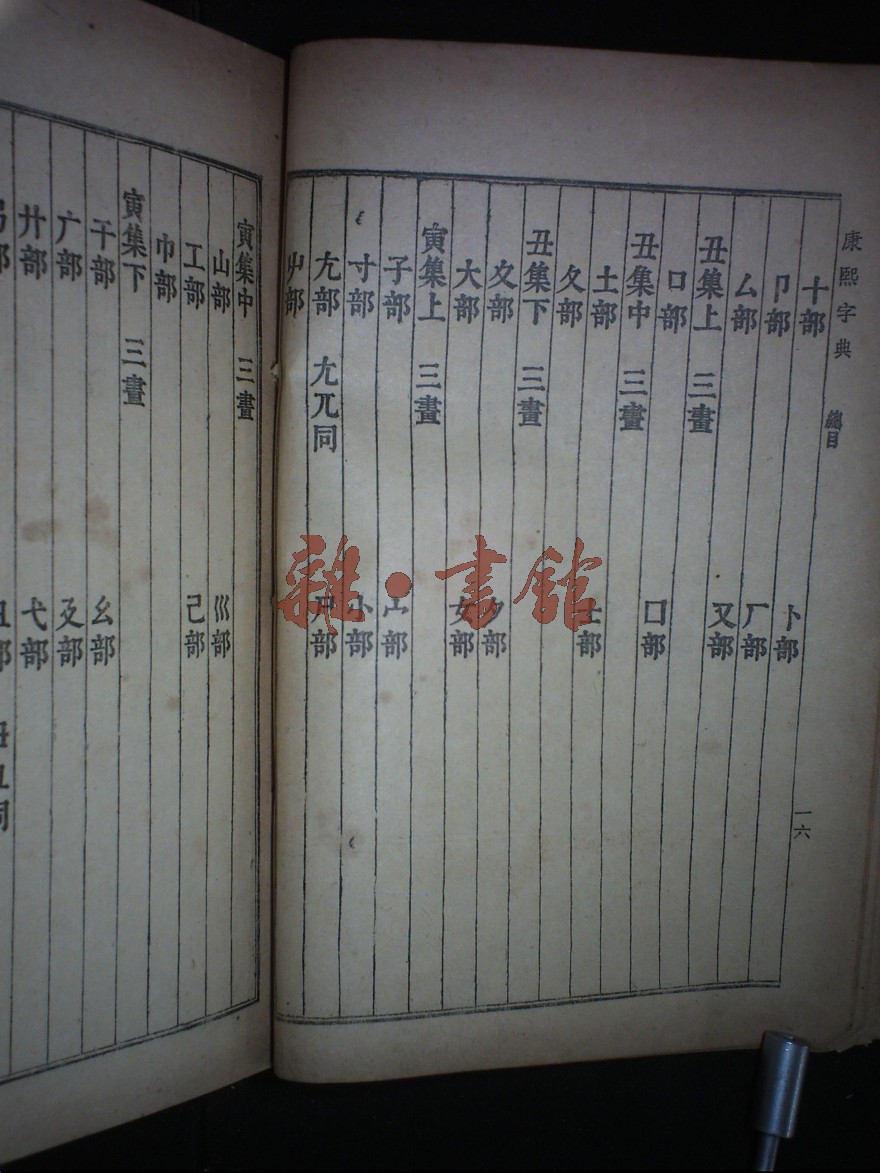 康熙字典 總目
一六
十部 卜部
卩部 厂部
厶部 又部
丑集上 三畫
口部 囗部
丑集中 三畫
土部 士部
夂部
夊部 夕部
丑集下 三畫
大部 女部
寅集上 三畫
子部 宀部
寸部 小部
尢部 尢兀同 尸部
屮部
寅集中 三畫
山部 巛部
工部 己部
巾部
寅集下 三畫
干部 幺部
广部 廴部
廾部 弋部
弓部
雜·書館